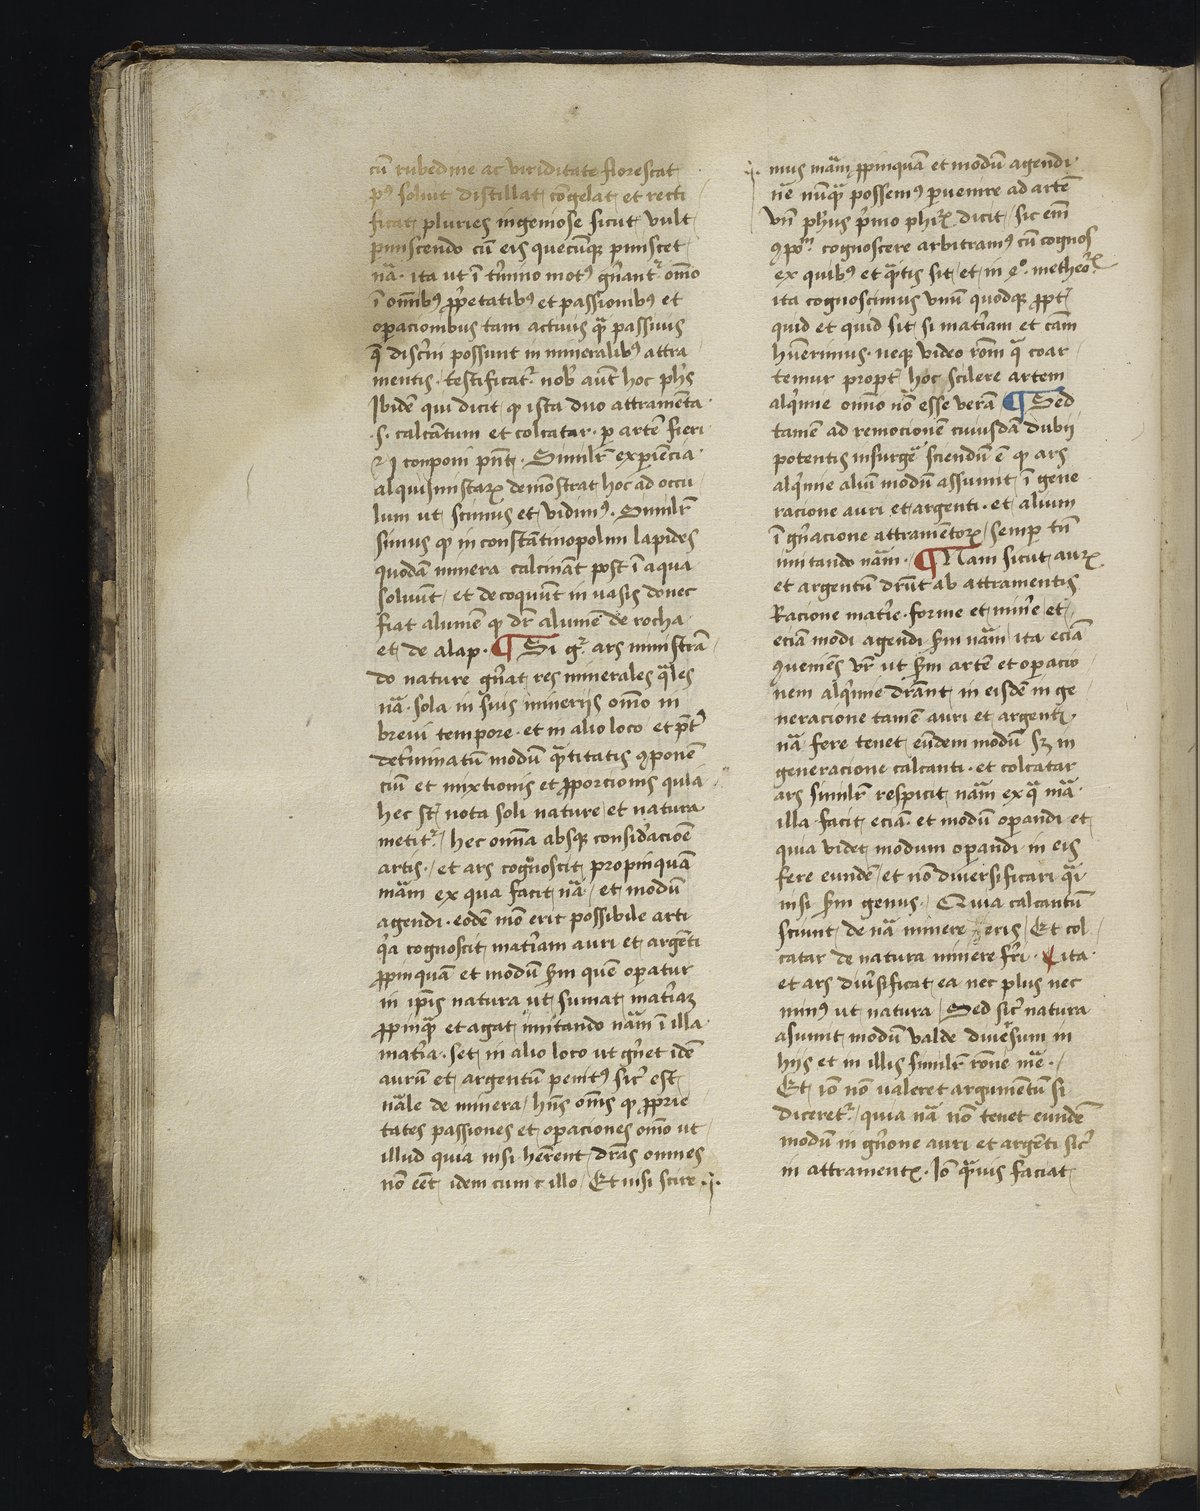 cū rubedine ac viriditate florescat
pꝰ soluit distillat congelat et recti
ficat pluries ingeniose sicut vult
ꝑmiscendo cū eis quecūqꝫ ꝑmiscet
nā · ita ut ī t'mino motꝰ gn̄ant᷑ om̄o
ī om̄ibꝰ ꝓp̄etatibꝰ et passionibꝰ et
oꝑacionibus tam actiuis qᷓ passiuis
q̄ disc'ni possunt in mineralibꝰ attra
mentis · testificat᷑ nob̄ aūt hoc ph̄s
Ibidē qui dicit ꝙ ista duo attramēta
·s· calcantum et colcatar · ꝑ artē fieri
⁊ conponi pn̄t · Simil'r exꝑiencia
alquimistaꝝ demōstrat hoc ad occu
lum ut scimus et vidimꝰ · Simil'r
simus ꝙ in constātinopolim lapides
quodā minera calcināt post ī aqua
soluūt et decoquūt in uasis donec
fiat alumē ꝙ dr̄ alumē de rocha
et de alap · ¶ Si g᷑ ars ministrā
do nature gn̄at res minerales qᷓles
nā · sola in suis minerijs om̄o in
breui tempore · et in alio loco et p̄t'
det'minatum modū qᷓntitatis ꝯponē
ciū et mixtionis et ꝓporcionis quia
hec st̄ nota soli nature et natura
metit᷑ / hec om̄ia absqꝫ consid'acioē
artis · et ars cognoscit propinquā
mām ex qua facit nā / et modū
agendi · eodē mō erit possibile arti
qᷓ cognoscit mat'iam auri et argēti
ꝓpinquā et modū s̄m quē oꝑatur
in ip̄is natura ut sumat mat'iaꝫ
ꝓpinqᷓ et agat imitando nām ī illa
mat'ia · set in alio loco ut gn̄et idē
aurū et argentū penitꝰ sic' est
nāle de minera / hn̄s om̄s ꝙ ꝓprie
tates passiones et oꝑaciones om̄o ut
illud quia nisi herent dr̄as omnes
nō eēt idem cum illo / Et nisi scire ·
mus mām ꝓpinquā et modū agendi ·
nē nūqᷓ possemꝰ ꝑuenire ad artē
Vn̄ ph̄us p̄mo phiꝝ dicit / sic em̄
ꝯpoᵐ cognoscere arbitramꝰ cū cognos
ex quibꝰ et qᷓntis sit et in 4º · metheoꝝ
ita cognoscimus vnū quodqꝫ ꝓpt'
quid et quid sit si mat'iam et cām
hūerimus · neqꝫ video rōm qᷓ coar
temur propt' hoc scilere artem
alq'mie om̄o nō esse verā ¶ Sed
tamē ad remocionē cuiusdā dubij
potentis insurge' sciendū ē ꝙ ars
alq'mie aliū modū assumit ī gene
racione auri et argenti · et alium
ī gn̄acione attramētoꝝ / semꝑ tn̄
imitando nām · ¶ Nam sicut auꝝ
et argentū dr̄nt ab attramentis
Racione mat'ie · forme et min'e et
eciā modi agendi s̄m nām ita eciā
ꝯueniēs vr̄ ut s̄m artē et oꝑacio
nem alq'mie dr̄ant in eisdē in ge
neracione tamē auri et argenti ·
nā fere tenet eūdem modū sꝫ in
generacione calcanti · et colcatar
ars simil'r respicit nām ex qᷓ mā
illa facit eciā · et modū oꝑandi et
quia videt modum oꝑandi in eis
fere eundē / et nō diuersificari qᷓi
nisi s̄m genus · Quia calcantū
sciunt de nā minere eris / Et col
catar de natura minere fr̄i · ita ·
et ars diu'sificat ea nec plus nec
minꝰ ut natura / Sed sic' natura
asumit modū valde diuersum in
hijs et in illis simil'r rōne mē ·
Et iō nō ualeret argumētū si
diceret᷑ · quia nā nō tenet eundē
modū in gn̄one auri et argēti sic'
in attramentꝭ · Iō qᷓuis faciat